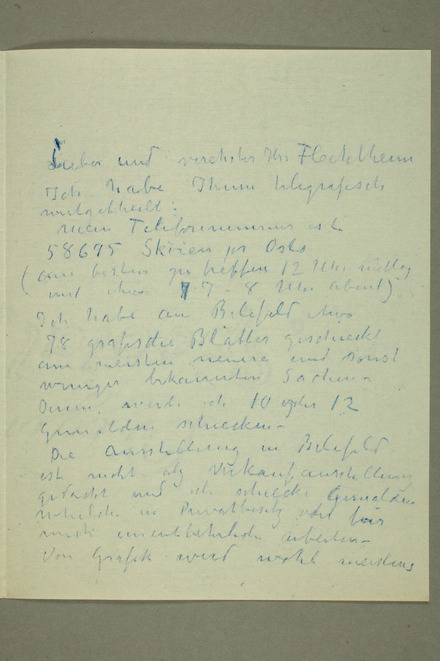 Lieber und verehrter Herr Flechtheim
Ich habe Ihnen telegrafisch
mitgetheilt:
mein Telefonnummer ist
58675 Skøien pr Oslo
(am besten zu treffen 12 Uhr mittag
und etwa 7 - 8 Uhr abend)
Ich habe an Bilefeld etwa
78 grafische Blätter geschickt
am meisten neuere und sonst
weniger bekannten Sachen -
Dann werde ich 10 oder 12
Gemälden schicken -
Die Ausstellung in Bilefeld
ist nicht als Verkaufausstellung
gedacht und ich schicke Gemälden
welche in Privatbesitz oder für
mich unentbehrliche arbeiten -
Von Grafik wird wohl meistens